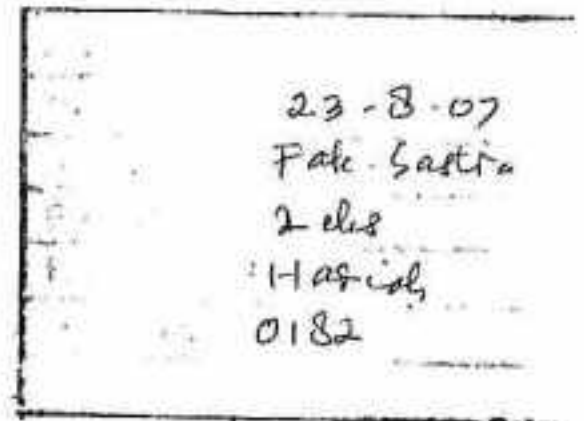 23-8-07
Fak. Sastra
2 eks
: Hadiah
0182